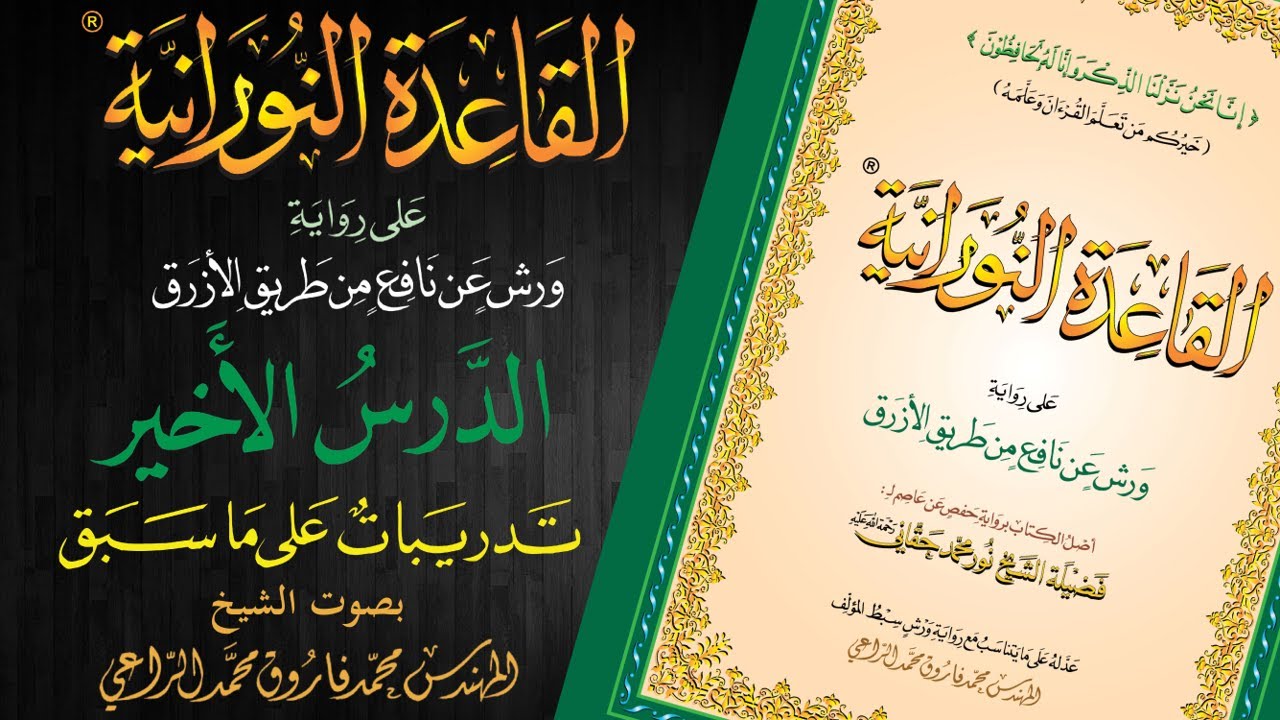 القَاعِدَة النُّورَانِيَّة ®
عَلى رِوَايَةِ
وَرش عَن نَافِعٍ مِن طَرِيقِ الأَزرَق
الدَّرسُ الأَخير
تَدرِيبَاتٌ عَلى مَا سَبَق
بصوت الشيخ
المهندس محمّد فاروق محمَّد الرّاعي
﴿ إِنَّا نَحْنُ نَزَّلْنَا الذِّكْرَ وَإِنَّا لَهُ لَحَافِظُونَ ﴾
( خَيرُكُم مَن تَعَلَّمَ القُرْءَانَ وَعَلَّمَهُ )
القَاعِدَة النُّورَانِيَّة ®
عَلى رِوَايَةِ
وَرش عَن نَافِعٍ مِن طَرِيقِ الأَزرَق
أصْلُ الكِتَابِ بِرِوَايَةِ حَفصٍ عَن عَاصِم لِـ:
فَضِيلَة الشَّيخ نُور محمد حقَّاني رحمة الله عليه
عَدَّلهُ عَلى مَا يَتَنَاسَبُ مَعَ رِوَايَةِ وَرْشٍ سِبْطُ المُؤَلِّف
المهندس محمّد فاروق محمَّد الرّاعي